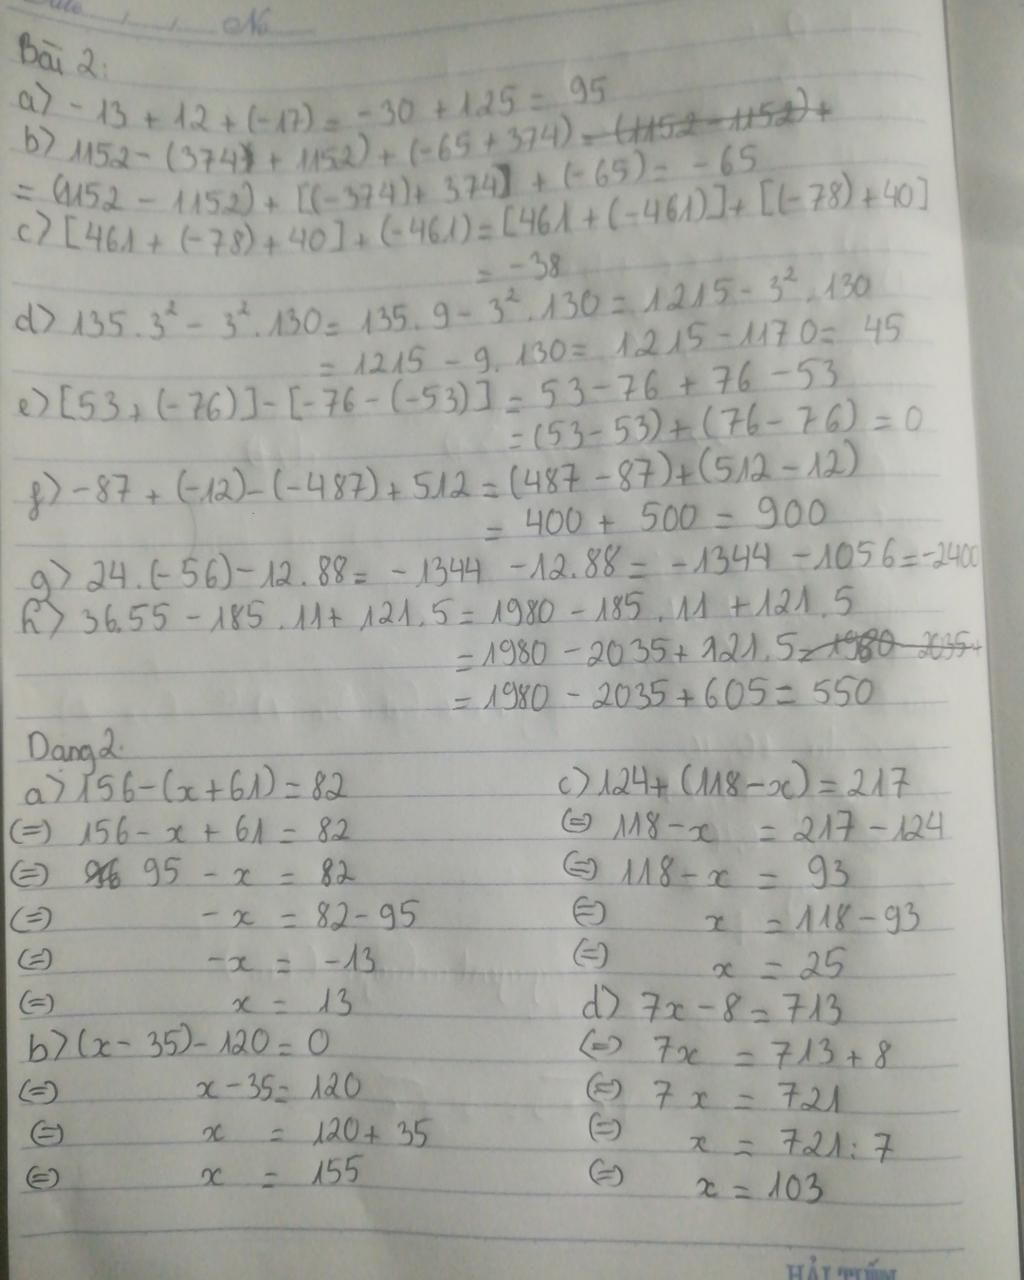 Date / / No
Bài 2:
a) -13 + 12 + (-17) = -30 + 125 = 95
b) 1152 - (374 + 1152) + (-65 + 374) = (1152 - 1152) +
= (1152 - 1152) + [(-374) + 374] + (-65) = -65
c) [461 + (-78) + 40] + (-461) = [461 + (-461)] + [(-78) + 40]
= -38
d) 135.3² - 3².130 = 135.9 - 3².130 = 1215 - 3².130
= 1215 - 9.130 = 1215 - 1170 = 45
e) [53 + (-76)] - [-76 - (-53)] = 53 - 76 + 76 - 53
= (53 - 53) + (76 - 76) = 0
f) -87 + (-12) - (-487) + 512 = (487 - 87) + (512 - 12)
= 400 + 500 = 900
g) 24.(-56) - 12.88 = -1344 - 12.88 = -1344 - 1056 = -2400
h) 36.55 - 185.11 + 121.5 = 1980 - 185.11 + 121.5
= 1980 - 2035 + 121.5 = 1980 - 2035 +
= 1980 - 2035 + 605 = 550
Dạng 2:
a) 156 - (x + 61) = 82
(=) 156 - x + 61 = 82
(=) 95 - x = 82
(=) -x = 82 - 95
(=) -x = -13
(=) x = 13
b) (x - 35) - 120 = 0
(=) x - 35 = 120
(=) x = 120 + 35
(=) x = 155
c) 124 + (118 - x) = 217
(=) 118 - x = 217 - 124
(=) 118 - x = 93
(=) x = 118 - 93
(=) x = 25
d) 7x - 8 = 713
(=) 7x = 713 + 8
(=) 7x = 721
(=) x = 721 : 7
(=) x = 103
HẢI TIẾN